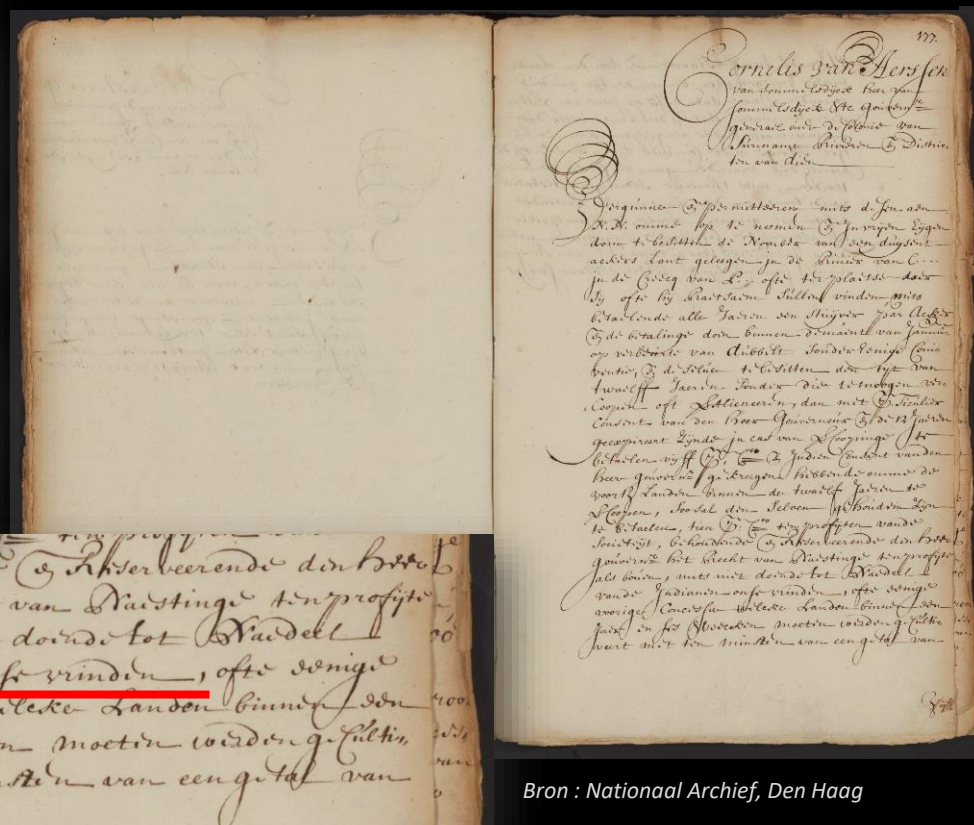 177.
Cornelis van Aerssen
van Sommelsdijck heer van
Sommelsdijck &tc Gouvernr
generael over de Colonie van
Suriname Rivieren & Distric-
ten van dien
Vergunnen & permitteeren mits desen aen
N.N. omme op te nemen & In vrijen Eijgen
dom te besitten de Nomber van een duijsent
ackers Lant gelegen in de Rivier van C....
in de Creecq van P... ofte ter plaetse daer
hij ofte sij Raetsaem sullen vinden mits
betaelende alle Jaeren een stuijver par Acker
& de betalinge doen binnen de maent van Januarij
op verbeurte van dubbelt sonder Eenige Conni
ventie, & de selve te besitten den tijt van
twaelff Jaeren sonder die te mogen ver
Coopen oft Alieneeren, dan met Speciale
Consent van den heer Gouverneur & de 12 Jaeren
geexpireert zijnde in cas van vercoopinge te
betaelen vijff pr. Cto & Indien Consent vanden
heer gouvernr gekreegen hebbende omme de
voors. Landen binnen de twaelf Jaeren te
vercoopen, soo sal den selven gehouden zijn
te betaelen, tien pr. Cto ten profijten vande
Societijt, behoudende & Reserveerende den heer
Gouvernr het Recht van Naestinge ten profijte
als boven, mits niet doende tot Naedeel
vande Indianen onse vrinden, ofte eenige
voorige Concessie welcke Landen binnen een
Jaer en ses Weecken moeten werden geculti-
veert met ten minsten van een getal van
Vijff
& Reserveerende den heer
van Naestinge ten profijte
doende tot Naedeel
se vrinden, ofte eenige
elcke Landen binnen een
n moeten werden geculti-
sten van een getal van
Bron : Nationaal Archief, Den Haag